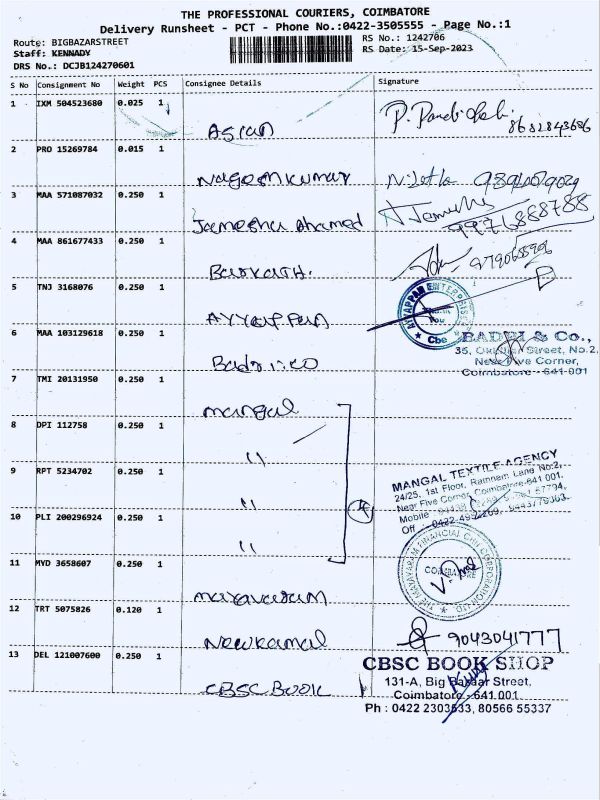 THE PROFESSIONAL COURIERS, COIMBATORE
Delivery Runsheet - PCT - Phone No.:0422-3505555 - Page No.:1
Route: BIGBAZARSTREET
RS No.: 1242706
Staff: KENNADY
RS Date: 15-Sep-2023
DRS No.: DCJB124270601
S No Consignment No Weight PCS Consignee Details Signature
1 IXM 504523680 0.025 1
Asian
8682843686
2 PRO 15269784 0.015 1
Nageshkumar
3 MAA 571087032 0.250 1
Jameesha Ahamed
9976888788
4 MAA 861677433 0.250 1
Barkath.
5 TNJ 3168076 0.250 1
AYYAPPAN
AYYAPPAN ENTERPRISES
Cbe
6 MAA 103129618 0.250 1
Badri & co
BADRI & Co.,
35, Street, No.2,
Near Five Corner,
Coimbatore - 641 001
7 TMI 20131950 0.250 1
mangal
8 DPI 112758 0.250 1
"
9 RPT 5234702 0.250 1
"
4
MANGAL TEXTILE AGENCY
24/25, 1st Floor, Ramnam Lane No:2,
Near Five Corner, Coimbatore-641 001.
Mobile :
Off :
10 PLI 200296924 0.250 1
"
11 MYD 3658607 0.250 1
mayavaram
THE MAYAVARAM FINANCIAL CHIT CORPORATION LTD
COIMBATORE
12 TRT 5075826 0.120 1
Newkamal
9043041777
13 DEL 121007600 0.250 1
CBSC BOOK
CBSC BOOK SHOP
131-A, Big Bazaar Street,
Coimbatore - 641 001
Ph : 0422 2303533, 80566 55337